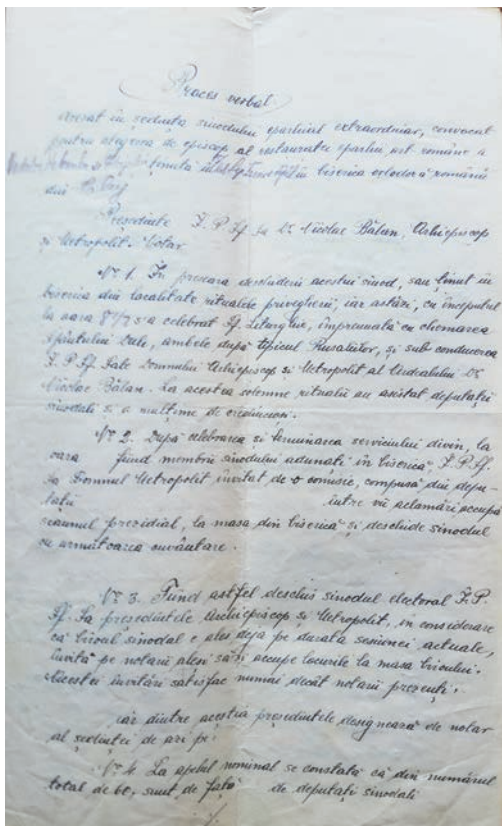 Proces verbal
dresat în ședința sinodului eparhial extraordinar, convocat
pentru alegerea de episcop al restauratei eparhii ort. române a
ținută în biserica ortodoxă română
din Cluj
Președinte I. P. Sf. Sa Dr. Nicolae Bălan, Arhiepiscop
și Metropolit. Notar
Nº 1. În preseara deschiderii acestui sinod, sau ținut în
biserica din localitate ritualele privegherii, iar astăzi, cu începutul
la oara 8½ s'a celebrat Sf. Liturghie, împreunată cu chemarea
Spiritului Sfânt, ambele după tipicul Rusaliilor, și sub conducerea
I. P. Sf. Sale Domnului Arhiepiscop și Metropolit al Ardealului Dr.
Nicolae Bălan. La acestea solemne ritualii au asistat deputații
sinodali și o mulțime de credincioși.
Nº 2. După celebrarea și terminarea serviciului divin, la
oara fiind membrii sinodului adunați în biserică, I. P. Sf.
Sa Domnul Metropolit invitat de o comisie, compusă din depu-
tații între vii aclamări ocupă
scaunul prezidial, la masa din biserică și deschide sinodul
cu următoarea cuvântare.
Nº 3. Fiind astfel deschis sinodul electoral I. P.
Sf. Sa președintele Arhiepiscop și Metropolit, in considerare
că biroul sinodal e ales deja pe durata sesiunei actuale,
invită pe notarii aleși să-și ocupe locurile la masa biroului.
Acestei invitări satisfac numai decât notarii prezenți,
iar dintre aceștia președintele designează de notar
al ședinței de azi pe:
Nº 4. La apelul nominal se constată că din numărul
total de 60, sunt de față de deputați sinodali
./.